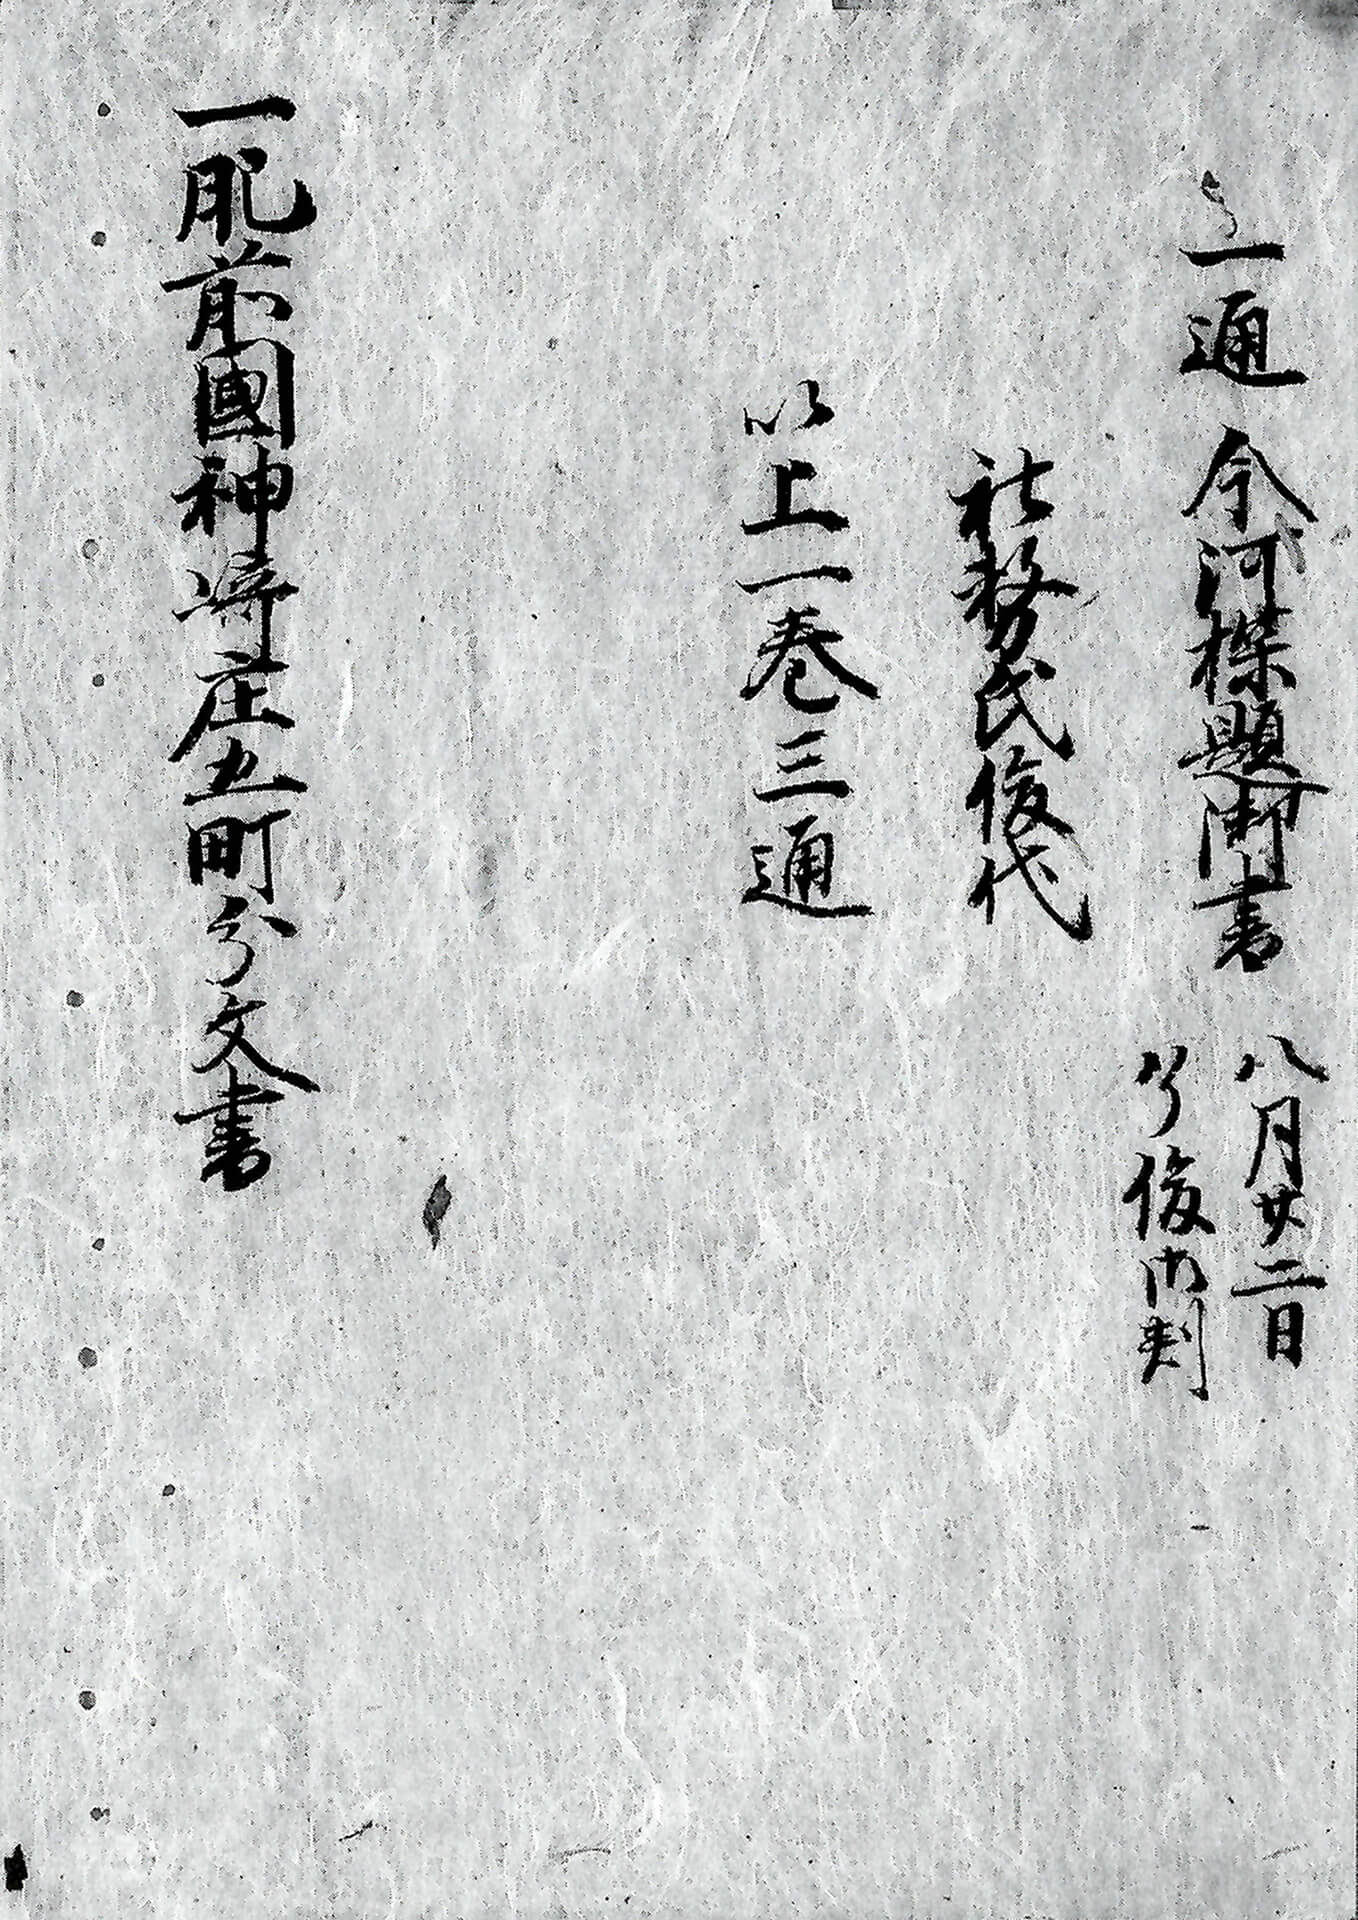 一通 今河探題御書 八月廿二日
了俊御判
社務氏俊代
以上一巻三通
一肥前國神崎庄五町分文書